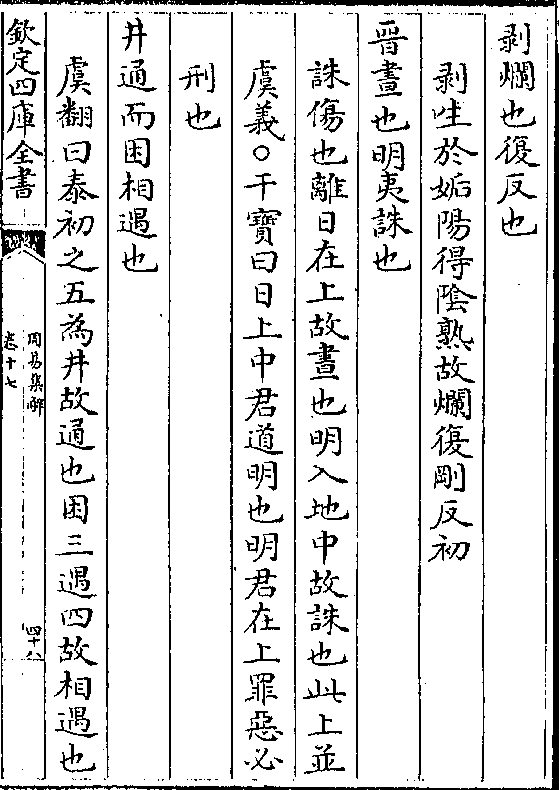 剥爛也復反也
剥生於姤陽得隂熟故爛復剛反初
晉晝也明夷誅也
誅傷也離日在上故晝也明入地中故誅也此上並
虞義○干寳曰日上中君道明也明君在上罪惡必
刑也
井通而困相遇也
虞翻曰泰初之五為井故通也困三遇四故相遇也
欽定四庫全書
周易集解
卷十七
四十八